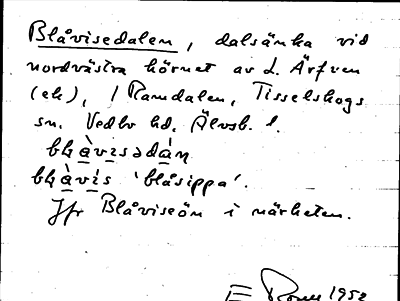 Blåvisedalen, dalsänka vid
nordvästra hörnet av L. Ärfven
(ek), i Ramdalen, Tisselskogs
sn. Vedbo hd. Älvsb. l.
blàvisədàn
blàvis 'blåsippa'.
Jfr Blåviseön i närheten.
1952